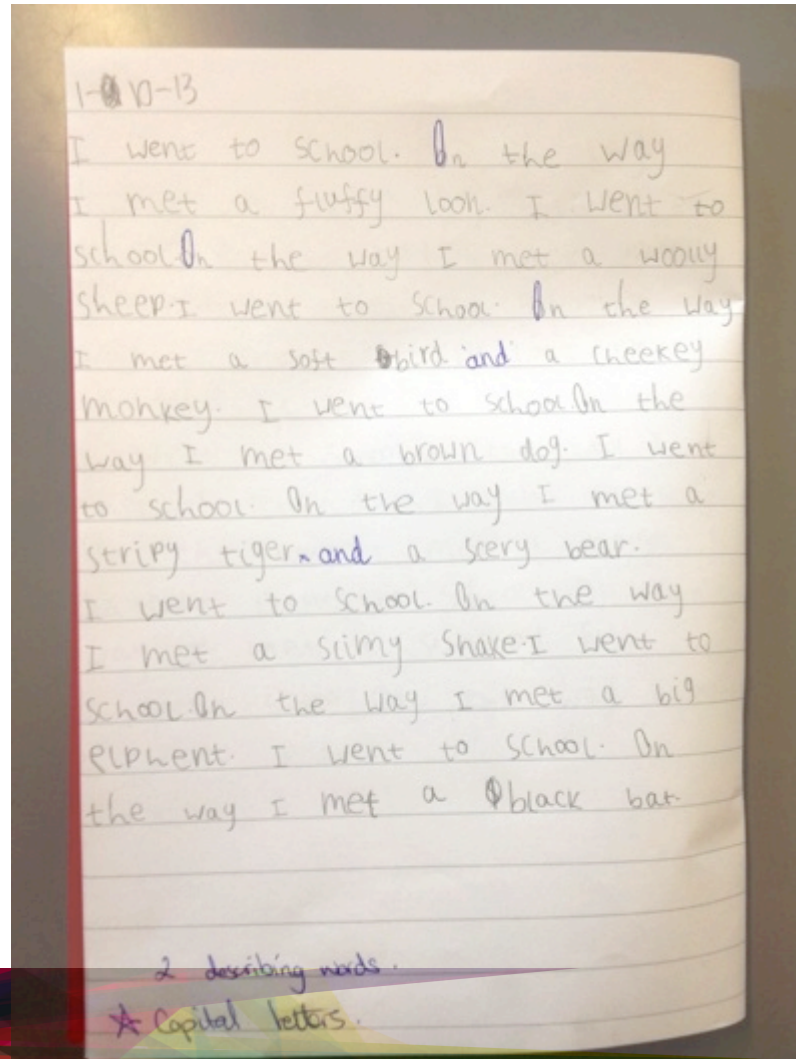 1-10-13
I went to school. On the way
I met a fluffy loon. I went to
school On the way I met a woolly
sheep. I went to school. On the way
I met a soft bird and a cheekey
monkey. I went to school. On the
way I met a brown dog. I went
to school. On the way I met a
stripy tiger and a scery bear.
I went to school. On the way
I met a slimy snake. I went to
school. On the way I met a big
elphent. I went to school. On
the way I met a black bat.
2 describing words.
☆ Capital letters.